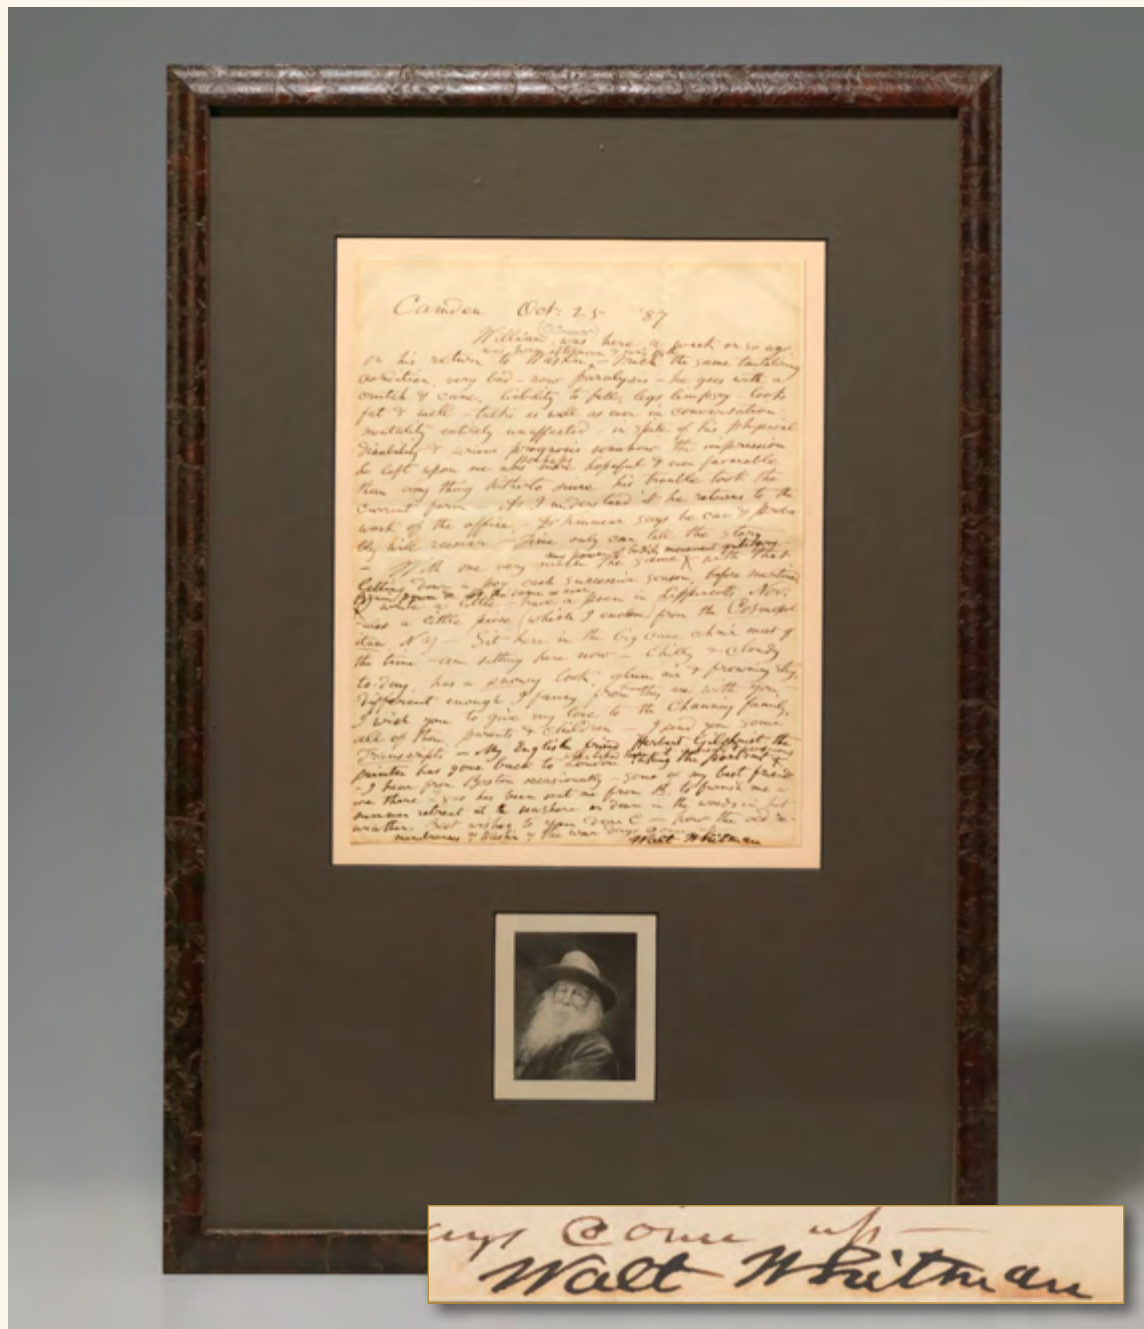 Camden Oct: 25 '87
(O'Connor)
William was here a week or so ago,
was here afternoon &
on his return to Washn, – much the same tantalizing
condition, very bad – now paralysis – he goes with a
crutch & cane, liability to fall, legs limpsey – looks
fat & well – talks as well as ever in conversation
mentality entirely unaffected – in spite of his physical
disability & serious prognosis somehow the impression
perhaps
he left upon me was more hopeful & even favorable
than any thing hitherto since his trouble took the
current form – As I understand it he returns to the
work of the office, – Dr Kinnear says he can & proba
bly will recover – Time only can tell the story
my power of bodily movement
– With me very much the same with that
letting down a peg each successive season, before mentioned
the same as ever
I write a little – have a poem in Lippincotts Nov.
– also a little piece (which I enclose) from the Cosmopol
itan N Y – Sit here in the big cane chair most of
the time – am sitting here now – Chilly & cloudy
to-day, has a snowy look, glum me & frowning sky,
different enough I fancy from this are with you,
I wish you to give my love to the Channing family,
all of them parents & children – I send you some
Transcripts – My English friend Herbert Gilchrist the
painter has gone back to London taking the portrait
– I hear from Boston occasionally – some of my best friends
are there – has been sent me from B. to furnish me a
summer retreat at the seashore or down in the woods in hot
weather. Best wishes to you dear C – how the old re-
membrances of Washn & the war days come up –
Walt Whitman
ays come up –
Walt Whitman